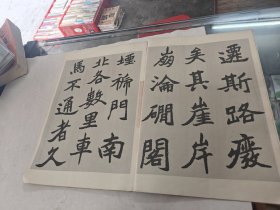 遷斯路癈
矣其崖岸
崩淪磵閣
堙褫門南
北各數里車
馬不通者久